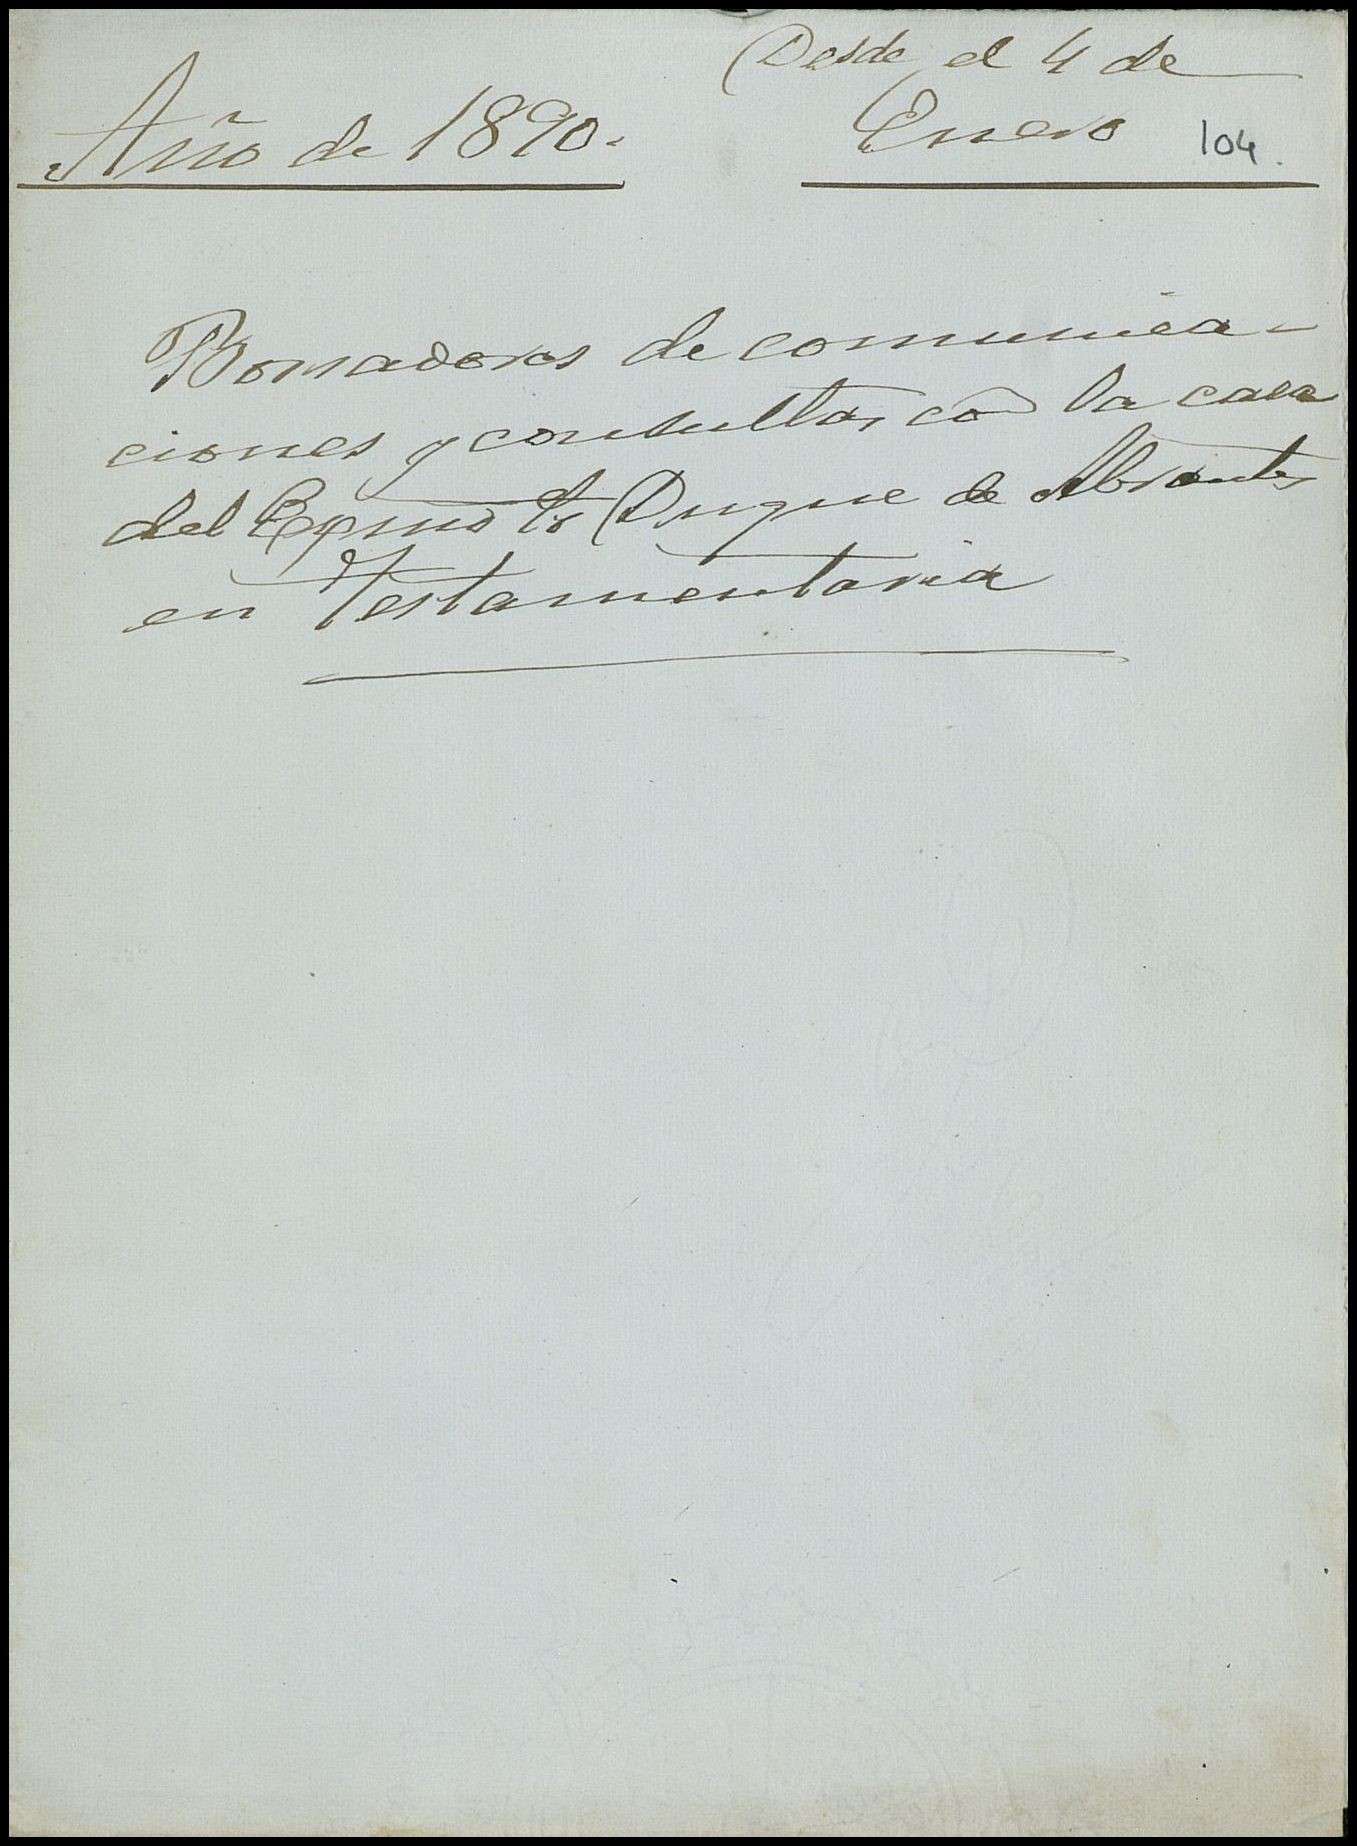 Desde el 4 de
Año de 1890.
Enero
104.
Borradores de comunica-
ciones y consultas con la casa
del Exmo Sr Duque de Abrantes
en Testamentaria